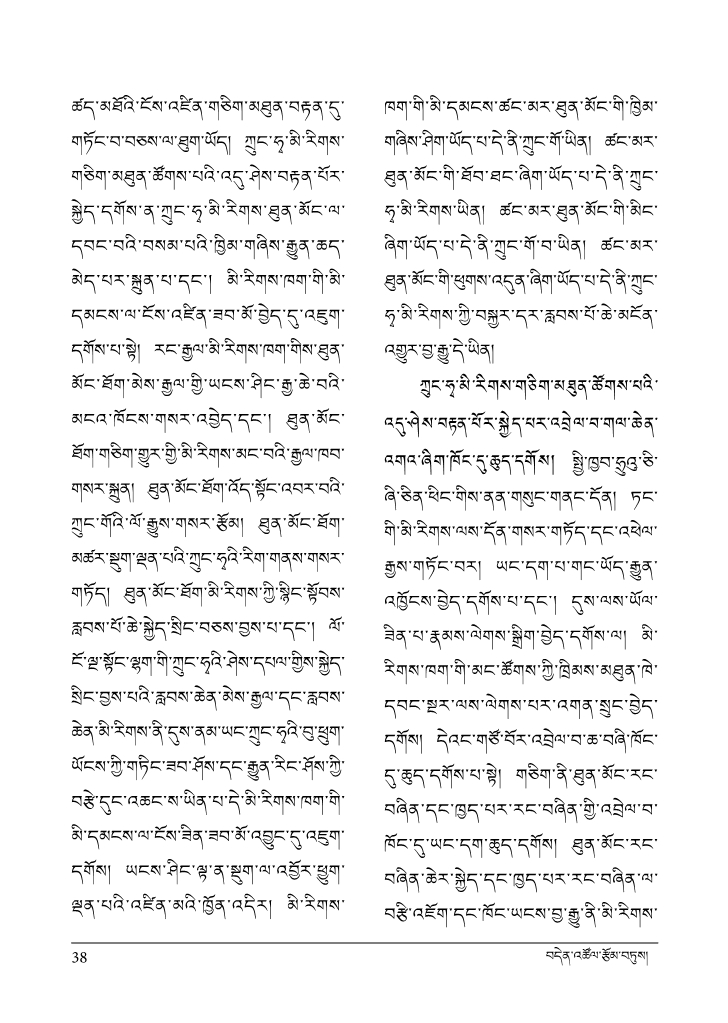 ཚད་མཐོའི་ངོས་འཛིན་གཅིག་མཐུན་བརྟན་དུ་
གཏོང་བ་བཅས་ལ་ཐུག་ཡོད། ཀྲུང་ཧྭ་མི་རིགས་
གཅིག་མཐུན་ཚོགས་པའི་འདུ་ཤེས་བརྟན་པོར་
སྐྱེད་དགོས་ན་ཀྲུང་ཧྭ་མི་རིགས་ཐུན་མོང་ལ་
དབང་བའི་བསམ་པའི་ཁྱིམ་གཞིས་རྒྱུན་ཆད་
མེད་པར་སྐྲུན་པ་དང་། མི་རིགས་ཁག་གི་མི་
དམངས་ལ་ངོས་འཛིན་ཟབ་མོ་བྱེད་དུ་འཇུག་
དགོས་པ་སྟེ། རང་རྒྱལ་མི་རིགས་ཁག་གིས་ཐུན་
མོང་ཐོག་མེས་རྒྱལ་གྱི་ཡངས་ཤིང་རྒྱ་ཆེ་བའི་
མངའ་ཁོངས་གསར་འབྱེད་དང་། ཐུན་མོང་
ཐོག་གཅིག་གྱུར་གྱི་མི་རིགས་མང་བའི་རྒྱལ་ཁབ་
གསར་སྐྲུན། ཐུན་མོང་ཐོག་འོད་སྟོང་འབར་བའི་
ཀྲུང་གོའི་ལོ་རྒྱུས་གསར་རྩོམ། ཐུན་མོང་ཐོག་
མཚར་སྡུག་ལྡན་པའི་ཀྲུང་ཧྭའི་རིག་གནས་གསར་
གཏོད། ཐུན་མོང་ཐོག་མི་རིགས་ཀྱི་སྙིང་སྟོབས་
རླབས་པོ་ཆེ་སྐྱེད་སྲིང་བཅས་བྱས་པ་དང་། ལོ་
ངོ་ལྔ་སྟོང་ལྷག་གི་ཀྲུང་ཧྭའི་ཤེས་དཔལ་གྱིས་སྐྱེད་
སྲིང་བྱས་པའི་རླབས་ཆེན་མེས་རྒྱལ་དང་རླབས་
ཆེན་མི་རིགས་ནི་དུས་ནམ་ཡང་ཀྲུང་ཧྭའི་བུ་ཕྲུག་
ཡོངས་ཀྱི་གཏིང་ཟབ་ཤོས་དང་རྒྱུན་རིང་ཤོས་ཀྱི་
བརྩེ་དུང་འཆང་ས་ཡིན་པ་དེ་མི་རིགས་ཁག་གི་
མི་དམངས་ལ་ངོས་ཟིན་ཟབ་མོ་འབྱུང་དུ་འཇུག་
དགོས། ཡངས་ཤིང་ལྟ་ན་སྡུག་ལ་འབྱོར་ཕྱུག་
ལྡན་པའི་འཛིན་མའི་ཁྱོན་འདིར། མི་རིགས་
ཁག་གི་མི་དམངས་ཚང་མར་ཐུན་མོང་གི་ཁྱིམ་
གཞིས་ཤིག་ཡོད་པ་དེ་ནི་ཀྲུང་གོ་ཡིན། ཚང་མར་
ཐུན་མོང་གི་ཐོབ་ཐང་ཞིག་ཡོད་པ་དེ་ནི་ཀྲུང་
ཧྭ་མི་རིགས་ཡིན། ཚང་མར་ཐུན་མོང་གི་མིང་
ཞིག་ཡོད་པ་དེ་ནི་ཀྲུང་གོ་བ་ཡིན། ཚང་མར་
ཐུན་མོང་གི་ཕུགས་འདུན་ཞིག་ཡོད་པ་དེ་ནི་ཀྲུང་
ཧྭ་མི་རིགས་ཀྱི་བསྐྱར་དར་རླབས་པོ་ཆེ་མངོན་
འགྱུར་བྱ་རྒྱུ་དེ་ཡིན།
ཀྲུང་ཧྭ་མི་རིགས་གཅིག་མཐུན་ཚོགས་པའི་
འདུ་ཤེས་བརྟན་པོར་སྐྱེད་པར་འབྲེལ་བ་གལ་ཆེན་
འགའ་ཞིག་ཁོང་དུ་ཆུད་དགོས། སྤྱི་ཁྱབ་ཧྲུའུ་ཅི་
ཞི་ཅིན་ཕིང་གིས་ནན་གསུང་གནང་དོན། ཏང་
གི་མི་རིགས་ལས་དོན་གསར་གཏོད་དང་འཕེལ་
རྒྱས་གཏོང་བར། ཡང་དག་པ་གང་ཡོད་རྒྱུན་
འཁྱོངས་བྱེད་དགོས་པ་དང་། དུས་ལས་ཡོལ་
ཟིན་པ་རྣམས་ལེགས་སྒྲིག་བྱེད་དགོས་ལ། མི་
རིགས་ཁག་གི་མང་ཚོགས་ཀྱི་ཁྲིམས་མཐུན་ཁེ་
དབང་སྔར་ལས་ལེགས་པར་འགན་སྲུང་བྱེད་
དགོས། དེའང་གཙོ་བོར་འབྲེལ་བ་ཆ་བཞི་ཁོང་
དུ་ཆུད་དགོས་པ་སྟེ། གཅིག་ནི་ཐུན་མོང་རང་
བཞིན་དང་ཁྱད་པར་རང་བཞིན་གྱི་འབྲེལ་བ་
ཁོང་དུ་ཡང་དག་ཆུད་དགོས། ཐུན་མོང་རང་
བཞིན་ཆེར་སྐྱེད་དང་ཁྱད་པར་རང་བཞིན་ལ་
བརྩི་འཇོག་དང་ཁོང་ཡངས་བྱ་རྒྱུ་ནི་མི་རིགས་
38
བདེན་འཚོལ་རྩོམ་བཏུས།